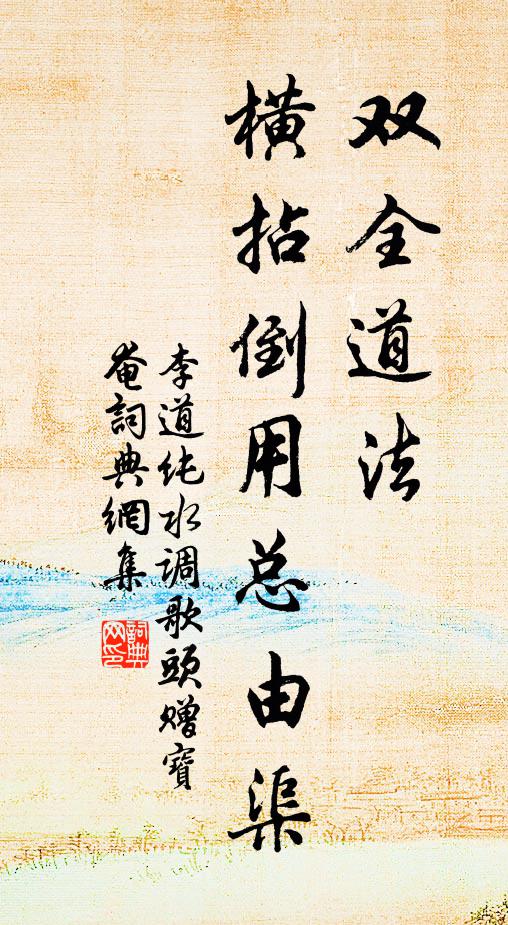 双全道法
横拈倒用总由渠
李道纯水调歌頭赠寶
菴詞典網集
詞典
网印